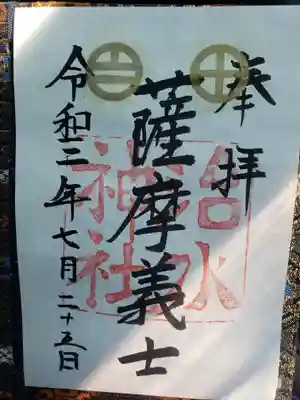 奉拝
薩摩義士
治水
神社
令和三年七月二十五日